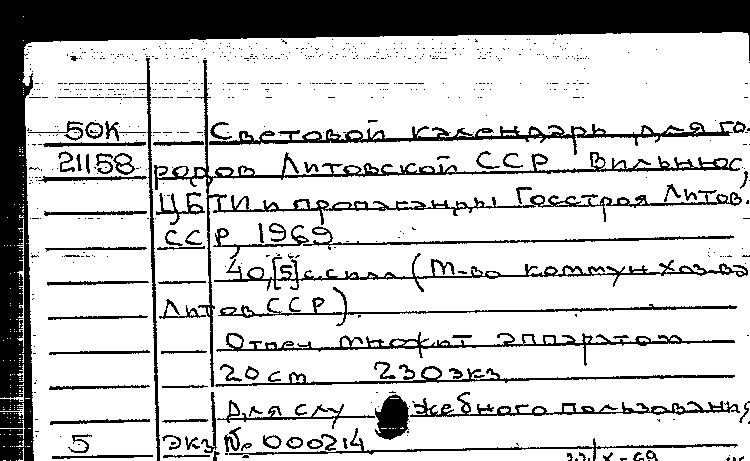 50К Световой календарь для го-
21158 родов Литовской ССР Вильнюс,
ЦБТИ и пропаганды Госстроя Литов.
ССР, 1969
40,[5] с силл (М-во коммун хоз-ва
Литов ССР)
Отпеч множит аппаратом
20 см 230 экз
Для служебного пользования
5 экз № 000214
X-69